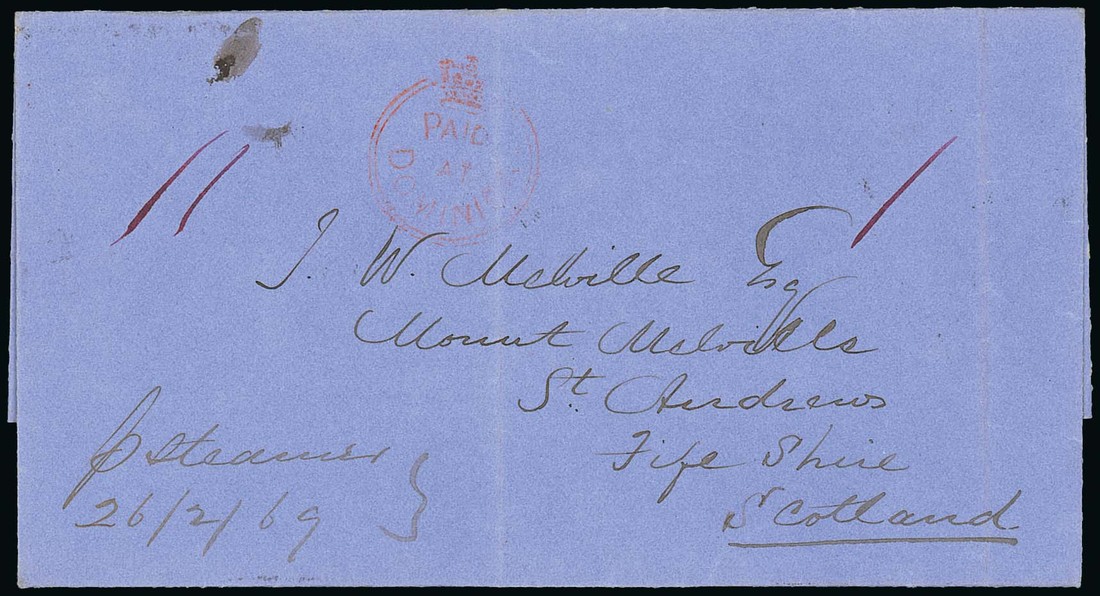 PAID
AT
DOMINICA
J. W. Melville Esq
Mount Melville
St. Andrews
Fife Shire
Scotland
p steamer
26/2/69